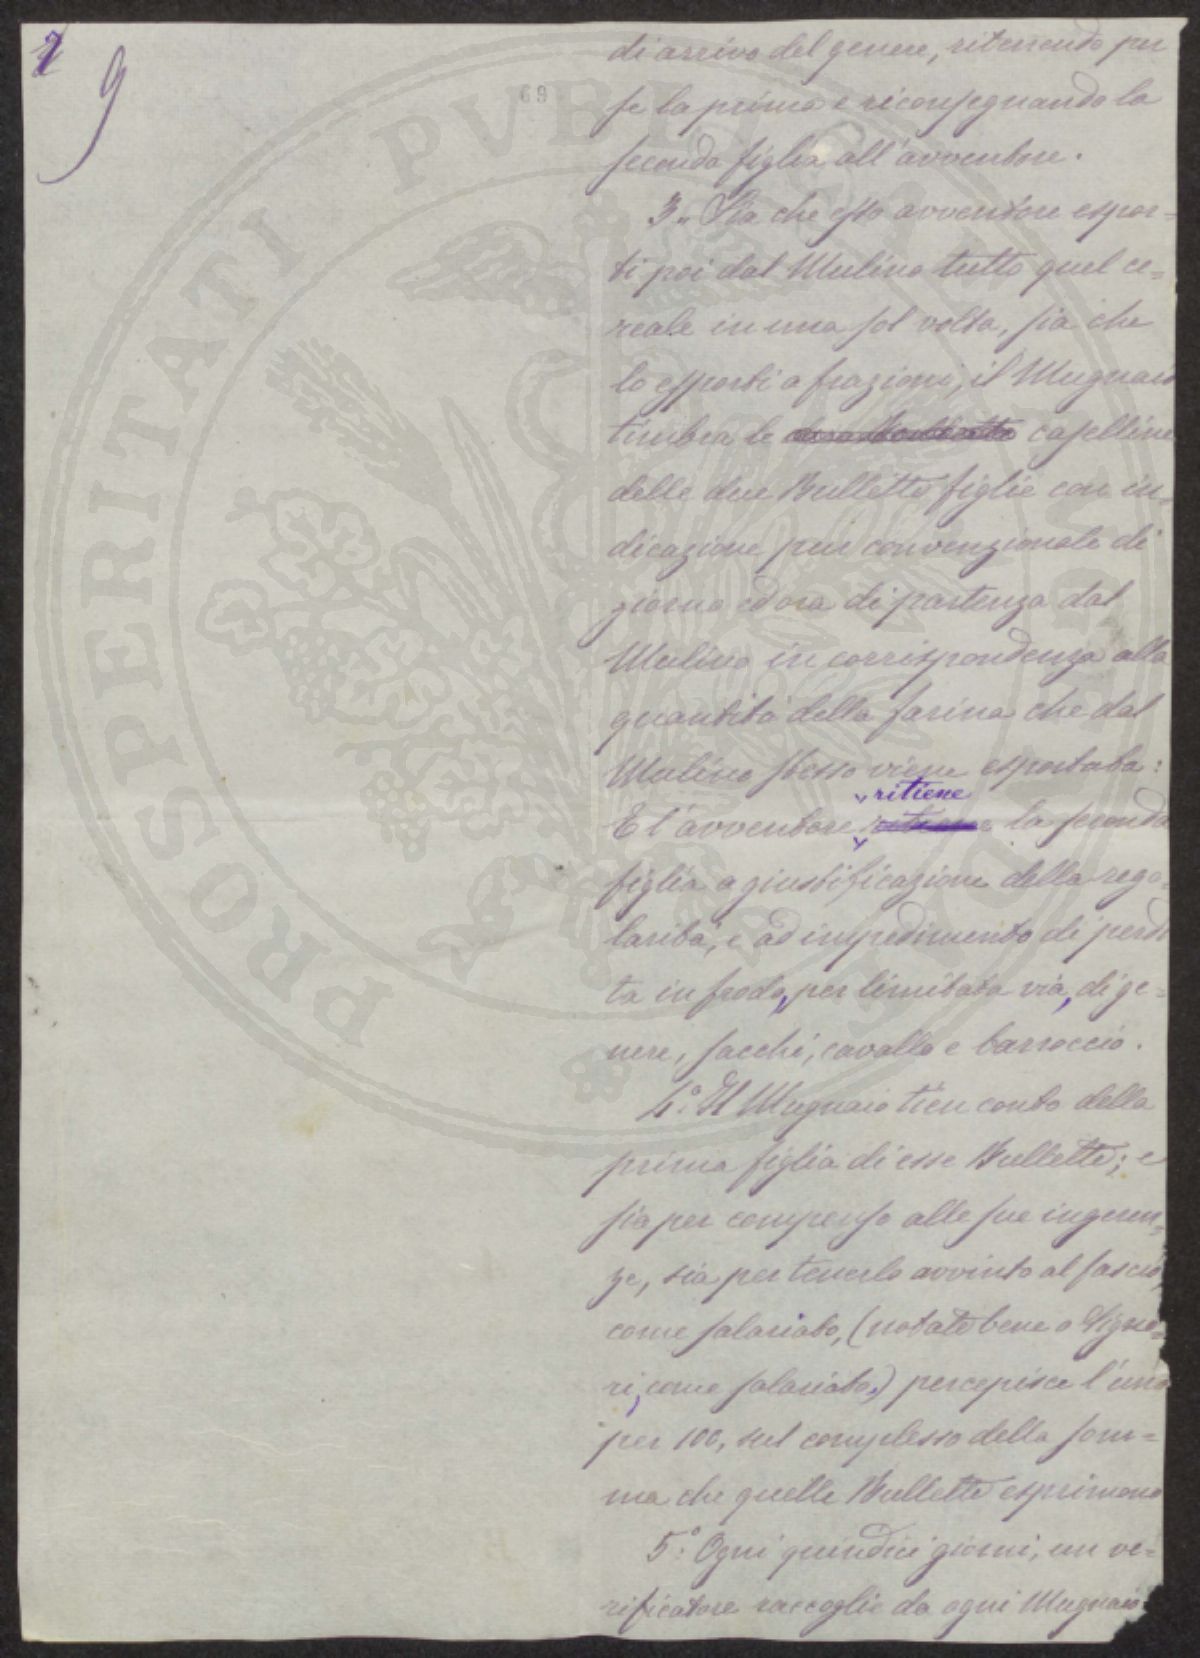 9
69
di arrivo del genere, ritenendo per
se la prima e riconsegnando la
seconda figlia all'avventore.
3.. Sia che esso avventore espor=
ti poi dal Mulino tutto quel ce=
reale in una sol volta, sia che
lo esporti a frazioni, il Mugnaio
timbra le caselline
delle due Bullette figlie con in=
dicazione pur convenzionale di
giorno ed ora di partenza dal
Mulino in corrispondenza alla
quantità della farina che dal
Mulino stesso viene esportata:
ritiene
E l'avventore la seconda
figlia a giustificazione della rego=
larità, e ad impedimento di perdi
ta in frodo, per limitata via, di ge=
nere, sacchi, cavallo e barroccio.
4.° Il Mugnaio tien conto della
prima figlia di esse Bullette; e
sia per compenso alle sue ingeren=
ze, sia per tenerlo avvinto al fascio,
come salariato, (notate bene o Signo=
ri, come salariato.) percepisce l'uno
per 100, sul complesso della som=
ma che quelle Bullette esprimono
5.° Ogni quindici giorni, un ve=
rificatore raccoglie da ogni Mugnaio
PROSPERITATI PVBLICAE